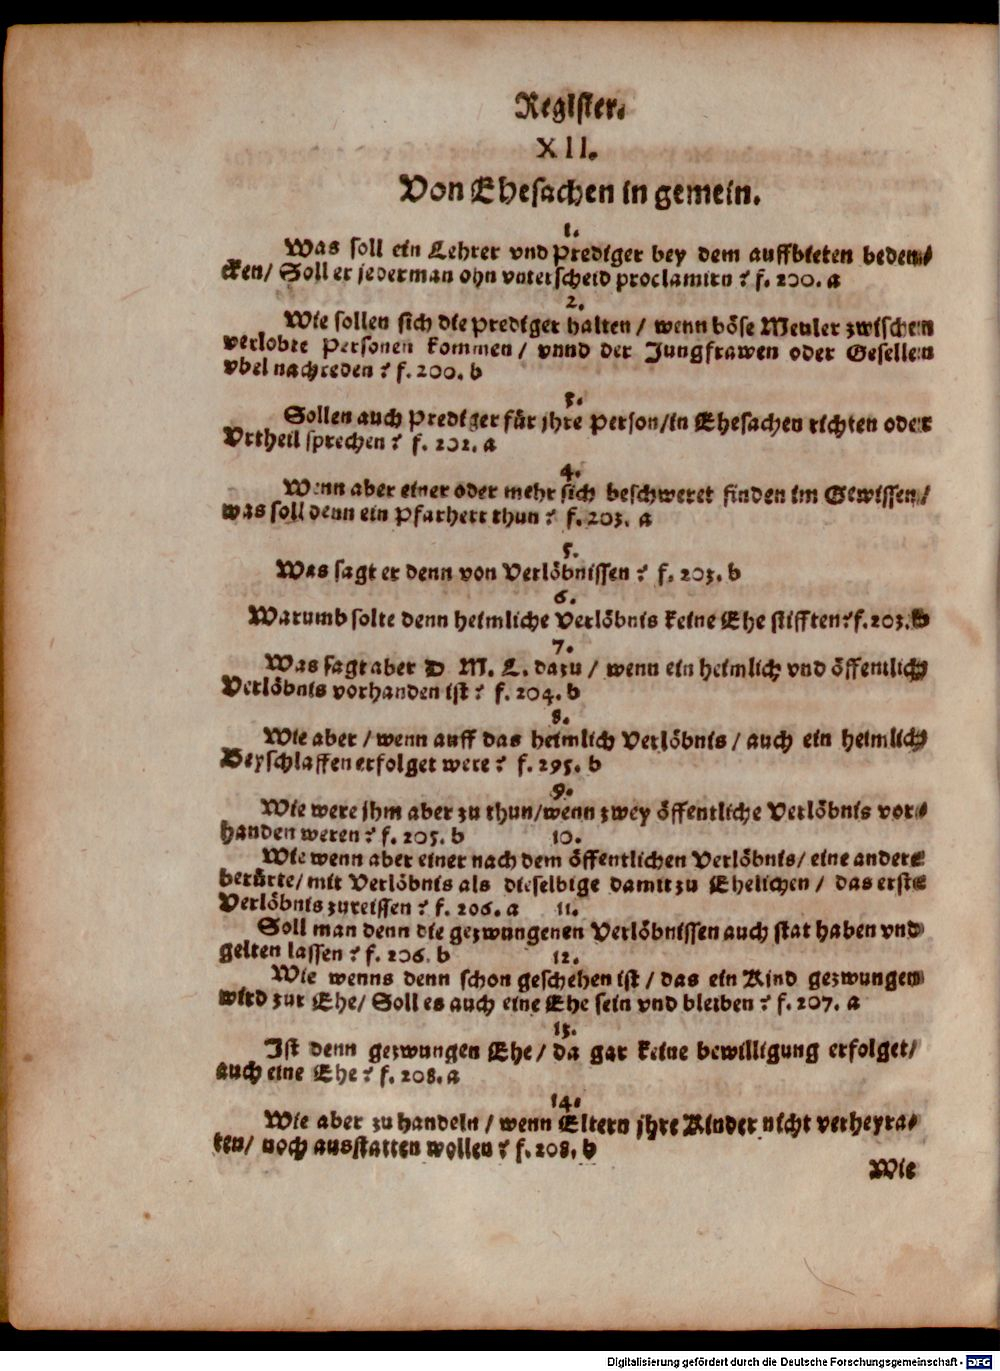 Register.
XII.
Von Ehesachen in gemein.
1.
Was soll ein Lehrer vnd Prediger bey dem auffbieten beden⸗
cken/ Soll er jederman ohn vnterscheid proclamirn? f. 200. a
2.
Wie sollen sich die Prediger halten/ wenn böse Meuler zwischen
verlobte Personen kommen/ vnnd der Jungfrawen oder Gesellen
vbel nachreden? f. 200. b
3.
Sollen auch Prediger für jhre Person/in Ehesachen richten oder
Vrtheil sprechen? f. 202. a
4.
Wenn aber einer oder mehr sich beschweret finden im Gewissen/
was soll denn ein Pfarherr thun? f. 203. a
5.
Was sagt er denn von Verlöbnissen? f. 203. b
6.
Warumb solte denn heimliche Verlöbnis keine Ehe stifften?f.203.b
7.
Was sagt aber D M. L. dazu/ wenn ein heimlich vnd öffentlich
Verlöbnis vorhanden ist? f. 204. b
8.
Wie aber/ wenn auff das heimlich Verlöbnis/ auch ein heimlich
Beyschlaffen erfolget were? f. 295. b
9.
Wie were jhm aber zu thun/wenn zwey öffentliche Verlöbnis vor⸗
handen weren? f. 205. b 10.
Wie wenn aber einer nach dem öffentlichen Verlöbnis/ eine andere
berürte/ mit Verlöbnis als dieselbige damit zu Ehelichen/ das erste
Verlöbnis zureissen? f. 206. a 11.
Soll man denn die gezwungenen Verlöbnissen auch stat haben vnd
gelten lassen? f. 206. b 12.
Wie wenns denn schon geschehen ist/ das ein Kind gezwungen
wird zur Ehe/ Soll es auch eine Ehe sein vnd bleiben? f. 207. a
13.
Ist denn gezwungen Ehe/ da gar keine bewilligung erfolget/
auch eine Ehe? f. 208. a
14.
Wie aber zu handeln/ wenn Eltern jhre Kinder nicht verheyra⸗
ten/ noch ausstatten wollen? f. 208. b
Wie
Digitalisierung gefördert durch die Deutsche Forschungsgemeinschaft - DFG